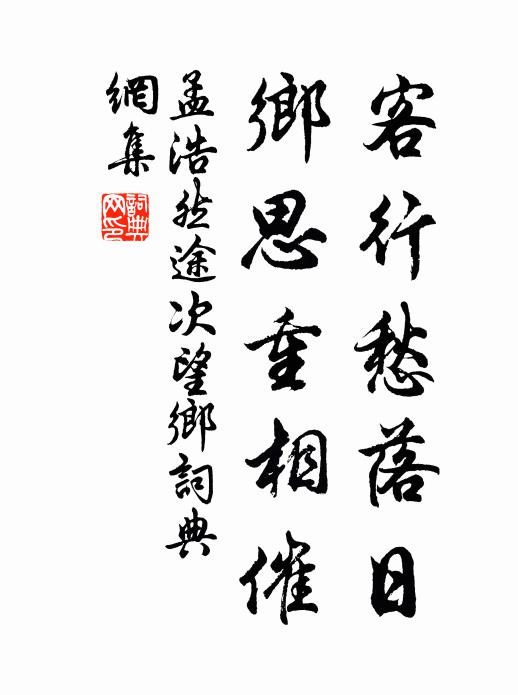 客行愁落日
鄉思重相催
孟浩然途次望鄉詞典
網集
詞典
网印